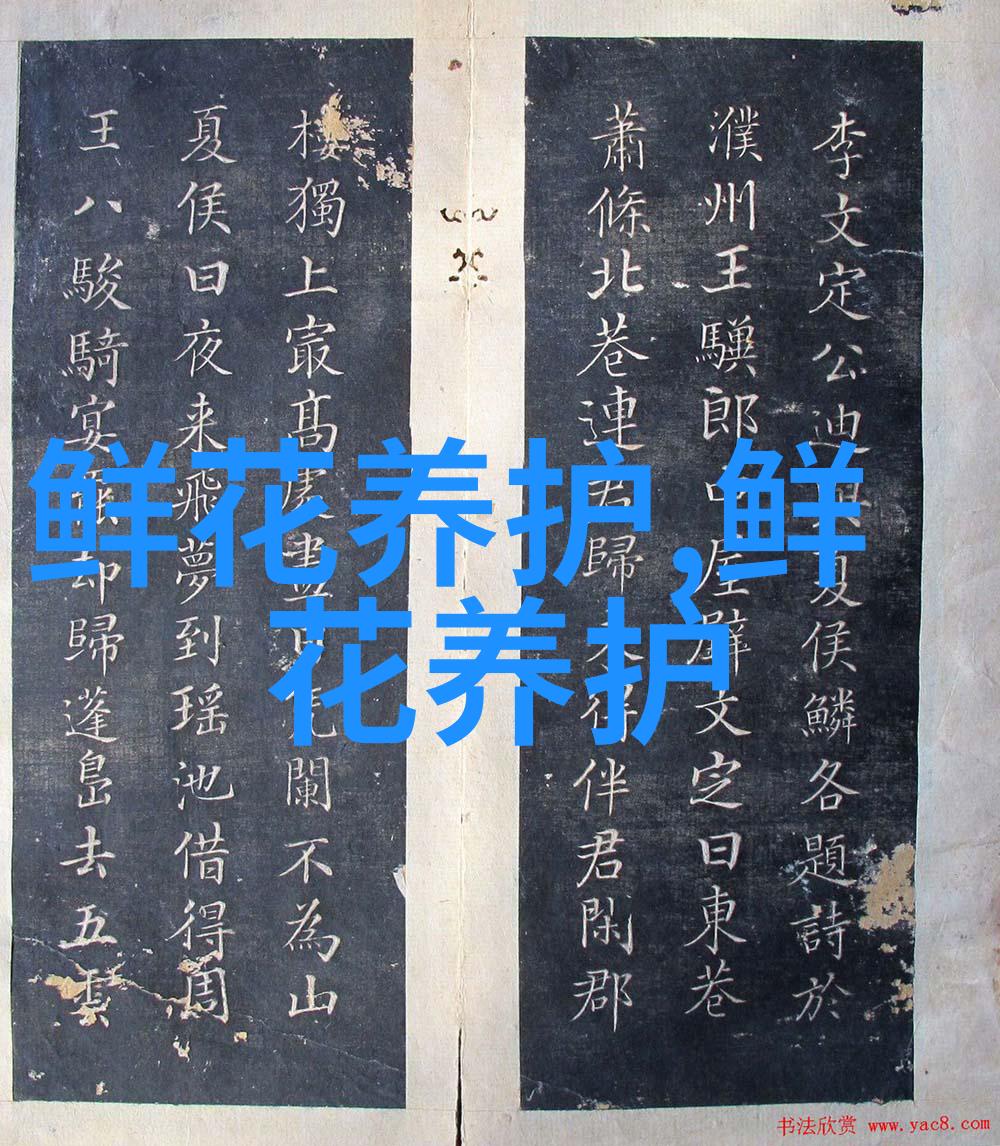 李文定公迪夏侯鱗各題詩於
濮州王驥郎中屋壁文定曰東巷
蕭條北巷連君歸得伴君閑郡
樓獨上㝡高處盡闌不為山
夏侯曰夜来飛夢到瑶池借得周
王八駿騎宴罷却歸蓬島去五雲
鲜花养护,鲜
花养护
书法欣赏 www.yac8.com